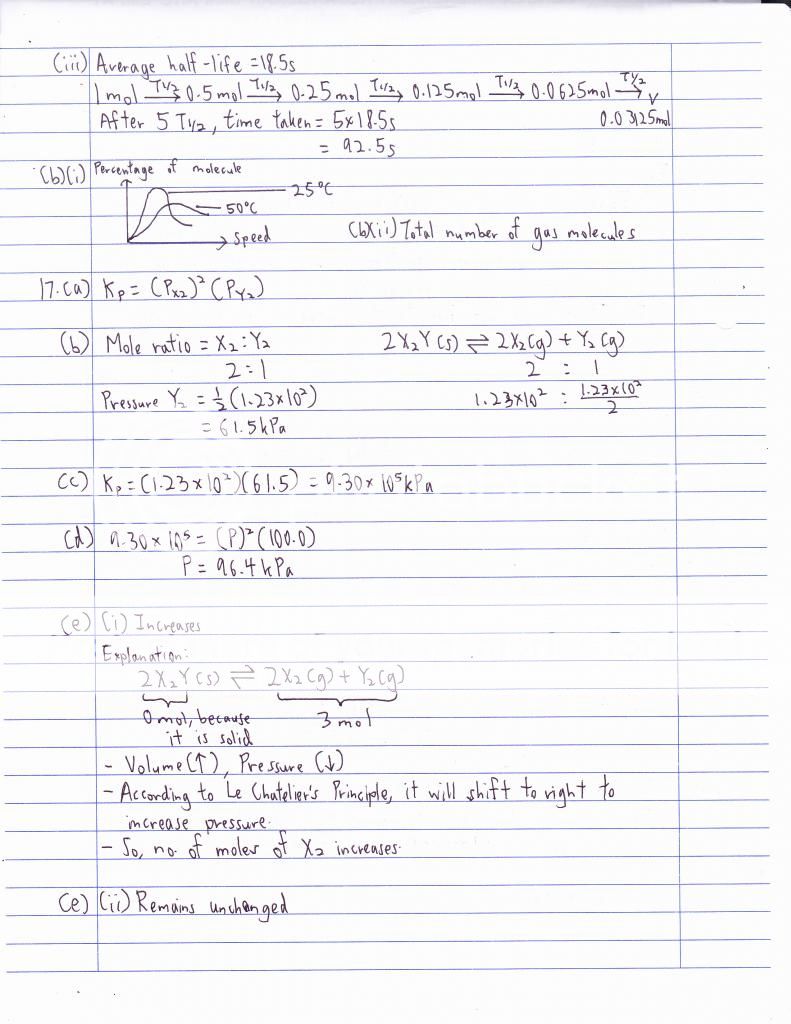 (iii) Average half-life = 18.5s
1 mol T1/2→ 0.5 mol T1/2→ 0.25 mol T1/2→ 0.125 mol T1/2→ 0.0625 mol T1/2→
After 5 T1/2, time taken = 5 x 18.5s 0.03125 mol
= 92.5s
(b)(i) Percentage of molecule
25°C
50°C
Speed
(b)(ii) Total number of gas molecules
17.(a) Kp = (Px2)² (PY2)
(b) Mole ratio = X2 : Y2 2X2Y (s) ⇌ 2X2(g) + Y2 (g)
2 : 1 2 : 1
Pressure Y2 = ½ (1.23x10²) 1.23x10² : 1.23x10²/2
= 61.5 kPa
(c) Kp = (1.23 x 10²)(61.5) = 9.30 x 10⁵ kPa
(d) 9.30 x 10⁵ = (P)² (100.0)
P = 96.4 kPa
(e) (i) Increases
Explanation:
2X2Y (s) ⇌ 2X2 (g) + Y2 (g)
0 mol, because 3 mol
it is solid
- Volume (↑), Pressure (↓)
- According to Le Chatelier's Principle, it will shift to right to
increase pressure.
- So, no. of moles of X2 increases.
(e) (ii) Remains unchanged